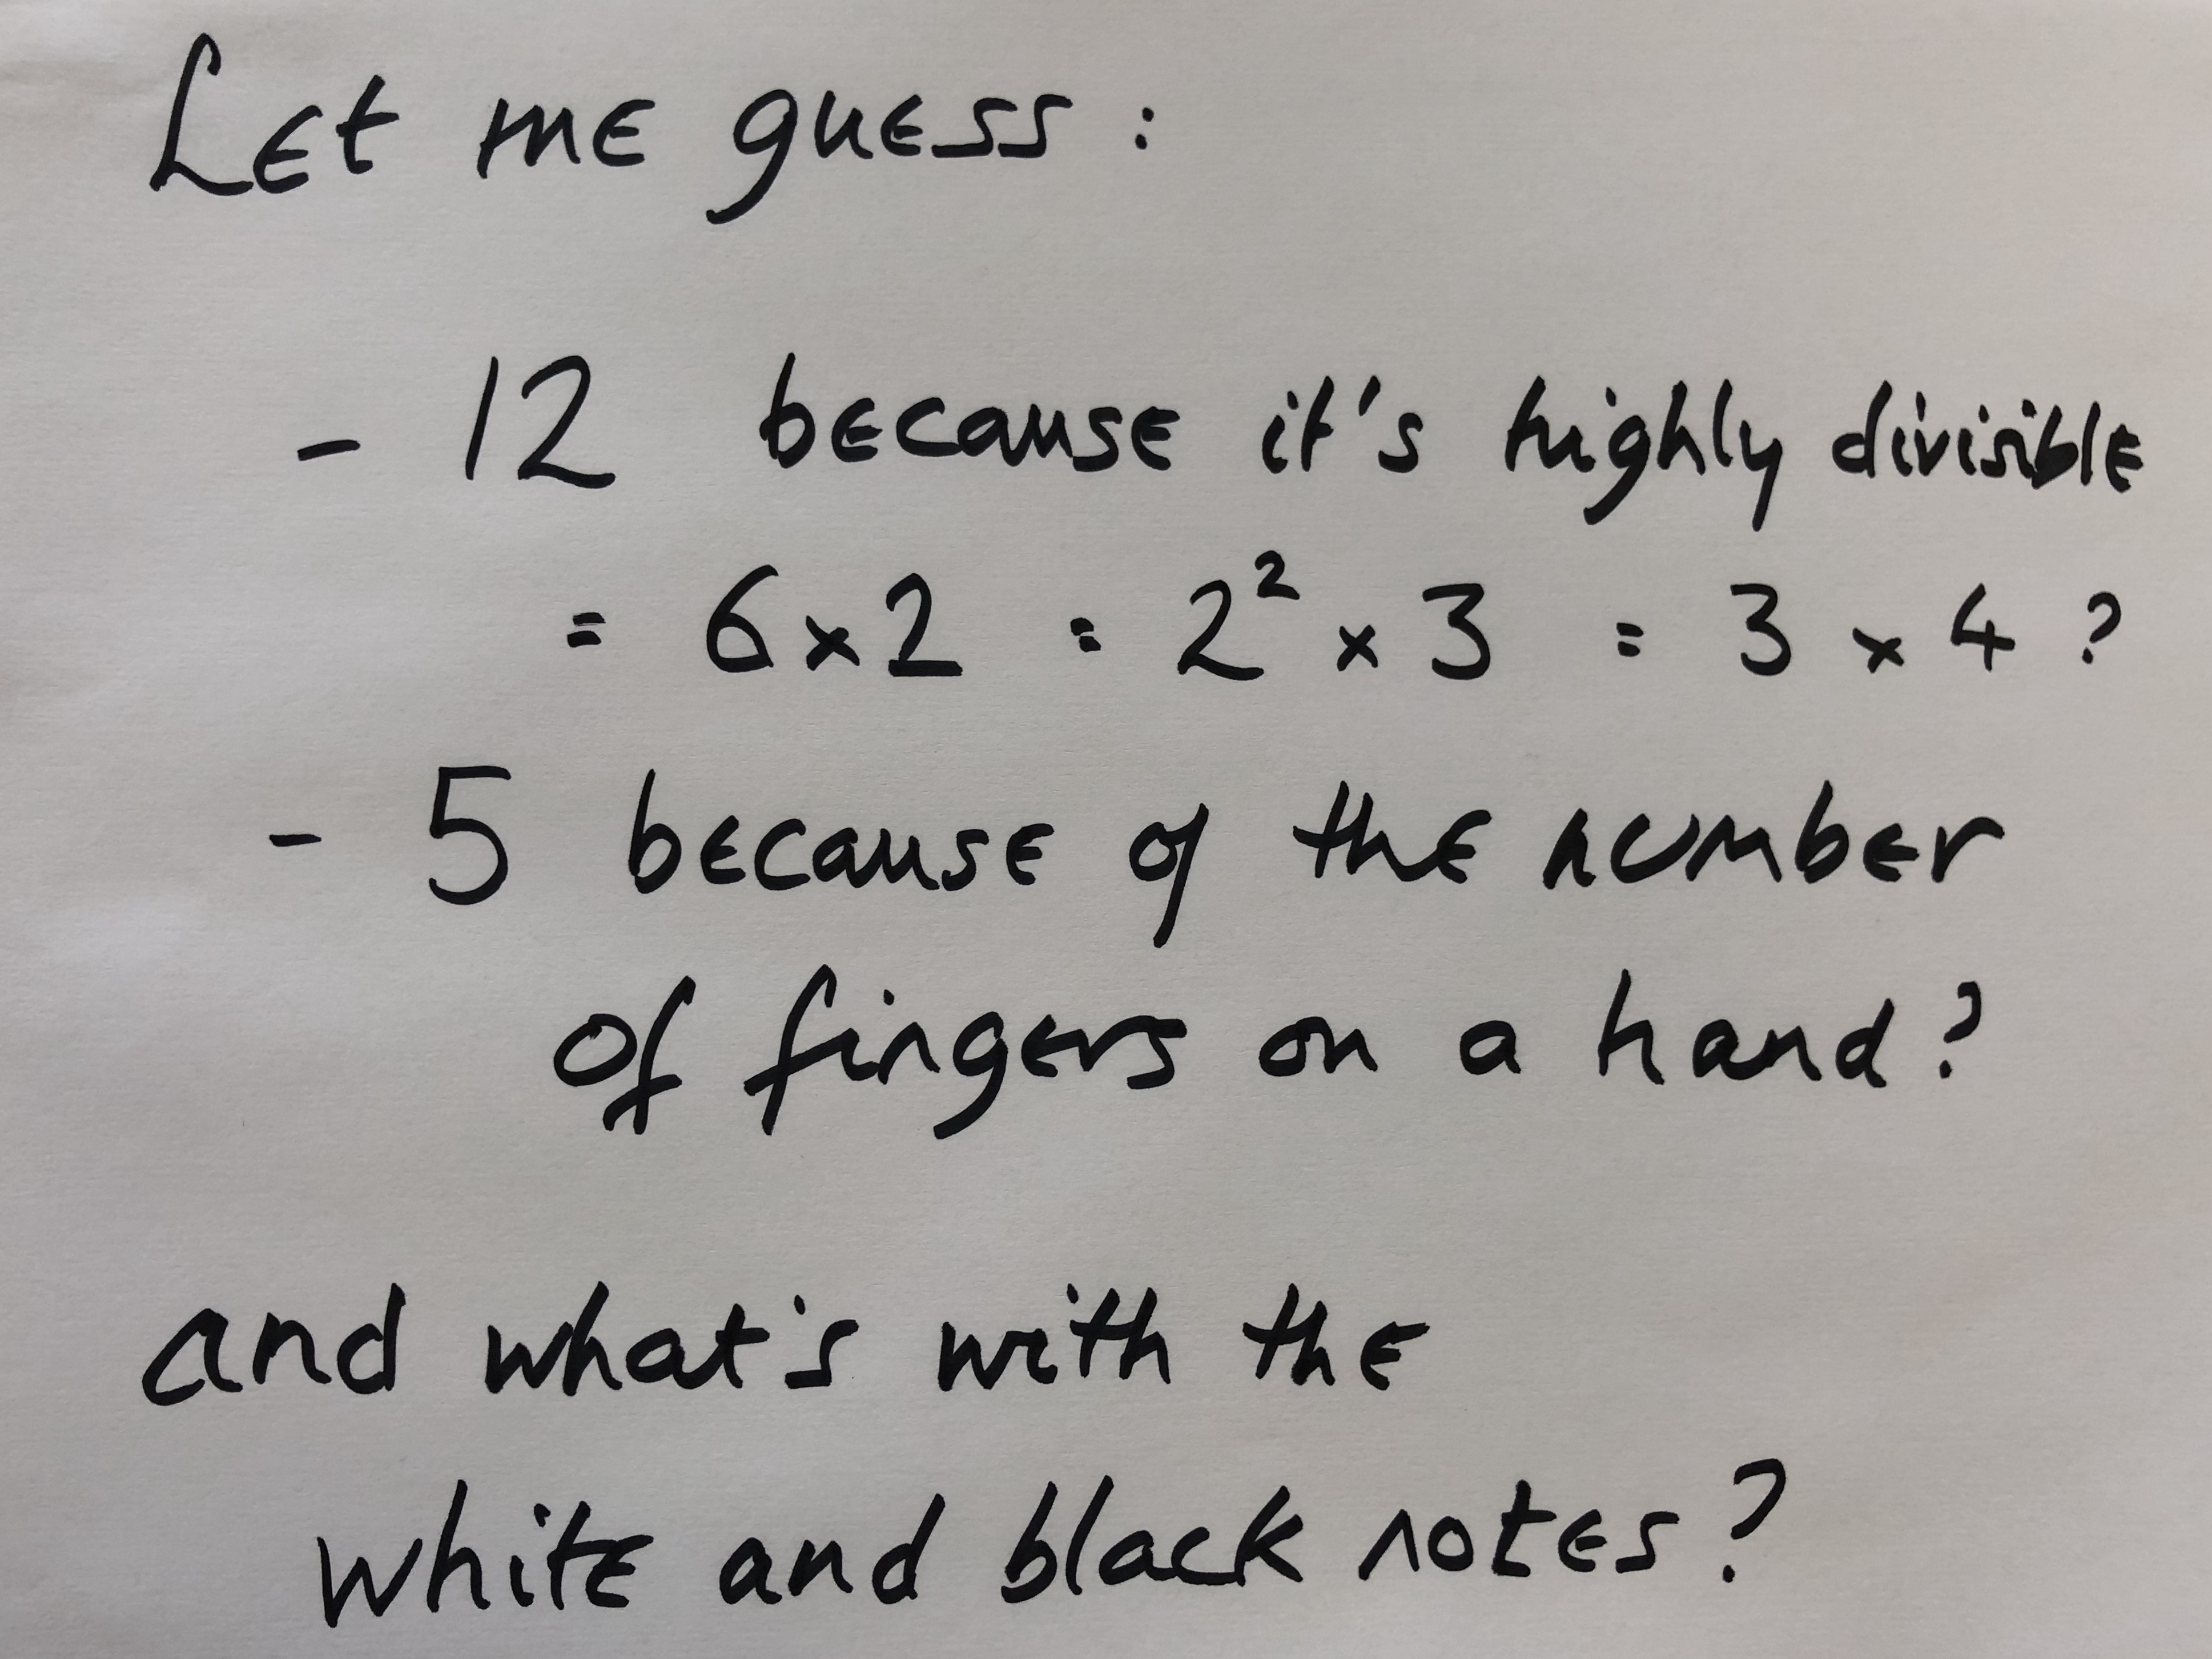 Let me guess:
- 12 because it's highly divisible
= 6 x 2 = 2² x 3 = 3 x 4 ?
- 5 because of the number
of fingers on a hand?
and what's with the
white and black notes?